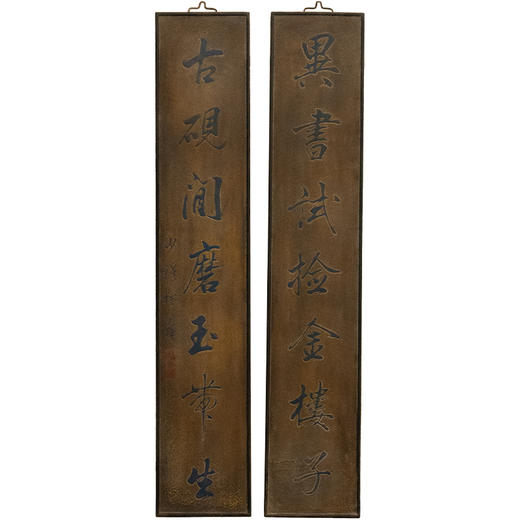 異書試撿金樓子
古硯閒磨玉帶生